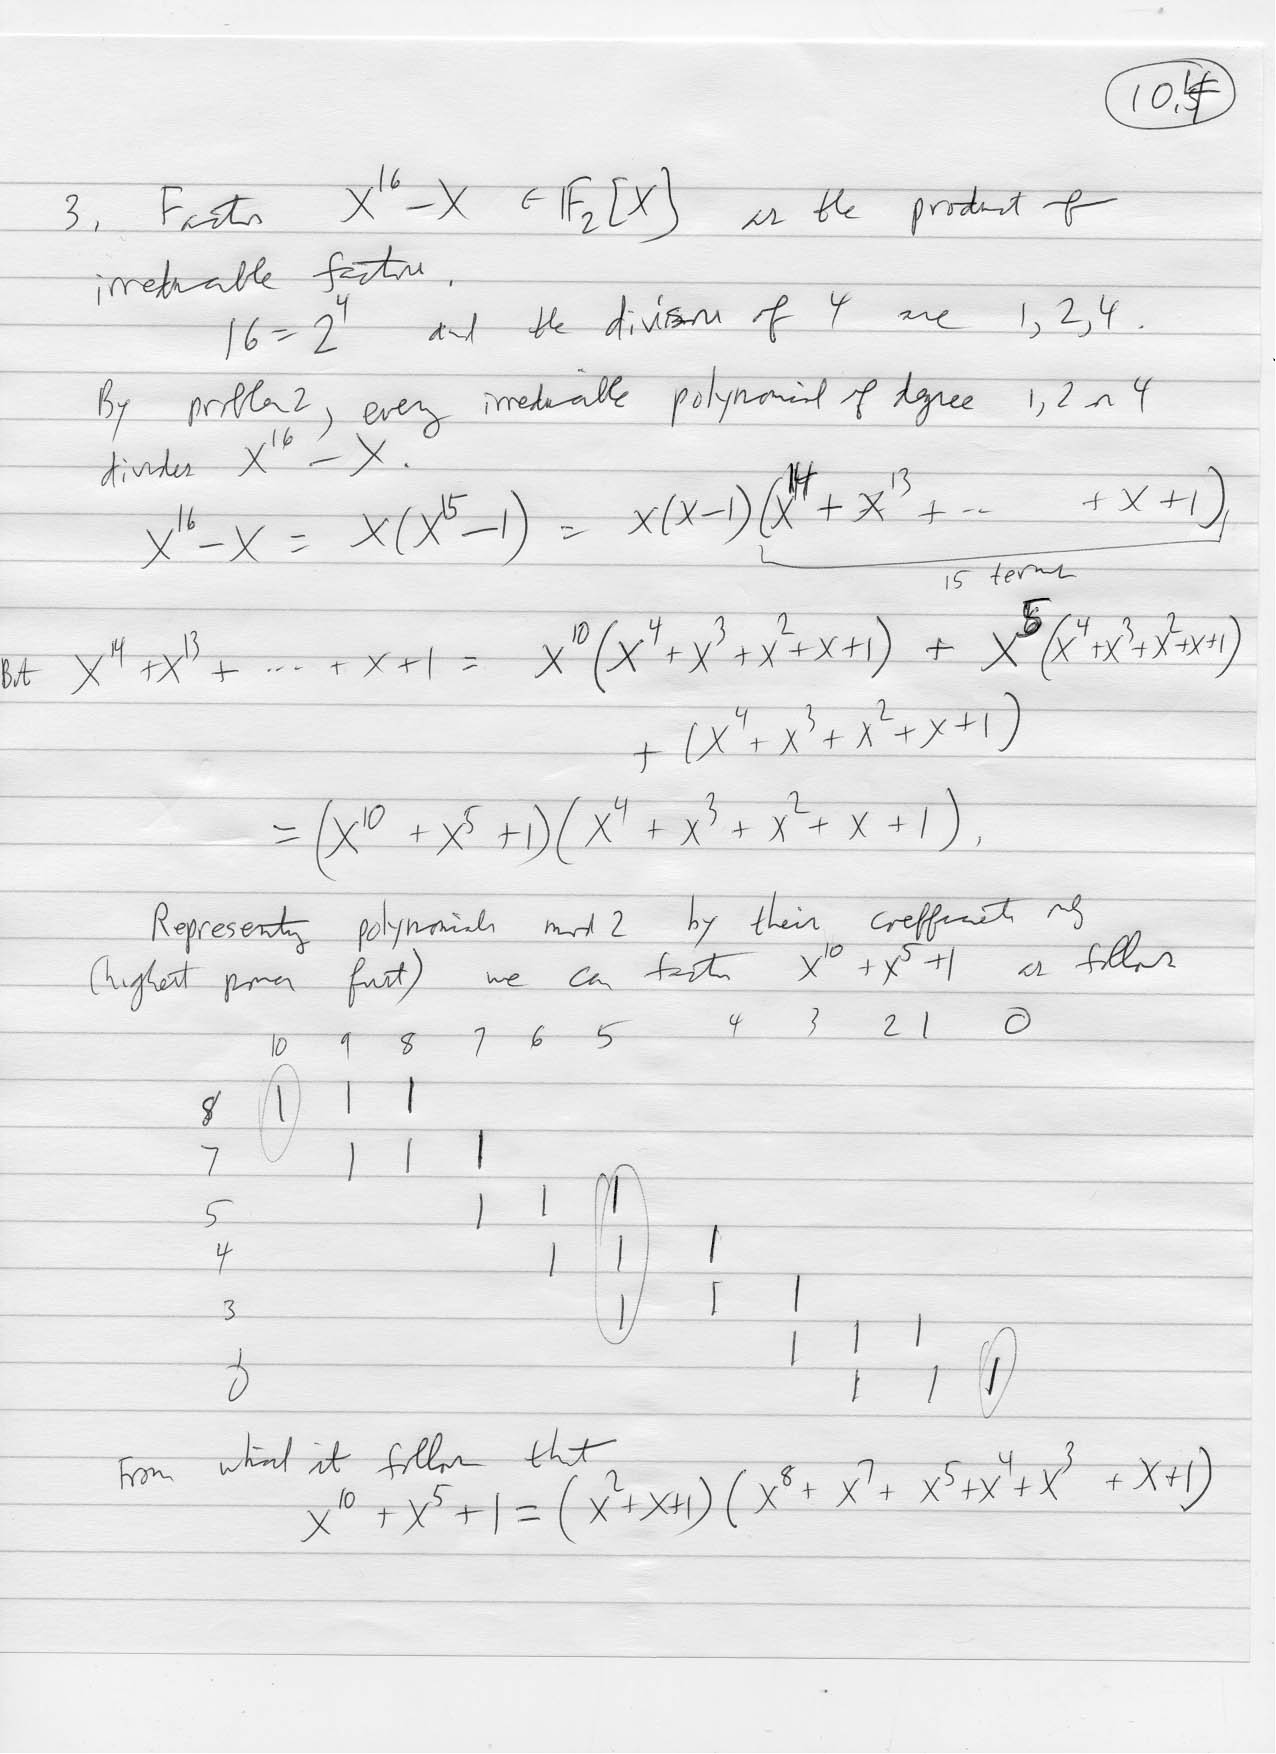 10.4
3. Factor X^16 - X ∈ 𝔽_2[X] as the product of
irreducable factors.
16 = 2^4 and the divisors of 4 are 1, 2, 4.
By problem 2, every irreducible polynomial of degree 1, 2 or 4
divides X^16 - X.
X^16 - X = X(X^15 - 1) = X(X-1)(X^14 + X^13 + ... + X + 1)
15 terms
But X^14 + X^13 + ... + X + 1 = X^10(X^4 + X^3 + X^2 + X + 1) + X^5(X^4 + X^3 + X^2 + X + 1)
+ (X^4 + X^3 + X^2 + X + 1)
= (X^10 + X^5 + 1)(X^4 + X^3 + X^2 + X + 1),
Representing polynomials mod 2 by their coefficients only
(highest power first) we can factor X^10 + X^5 + 1 as follows
10 9 8 7 6 5 4 3 2 1 0
8 1 1 1
7 1 1 1
5 1 1 1
4 1 1 1
3 1 1 1
1 1 1
0 1 1 1
From which it follows that
X^10 + X^5 + 1 = (X^2 + X + 1)(X^8 + X^7 + X^5 + X^4 + X^3 + X + 1)